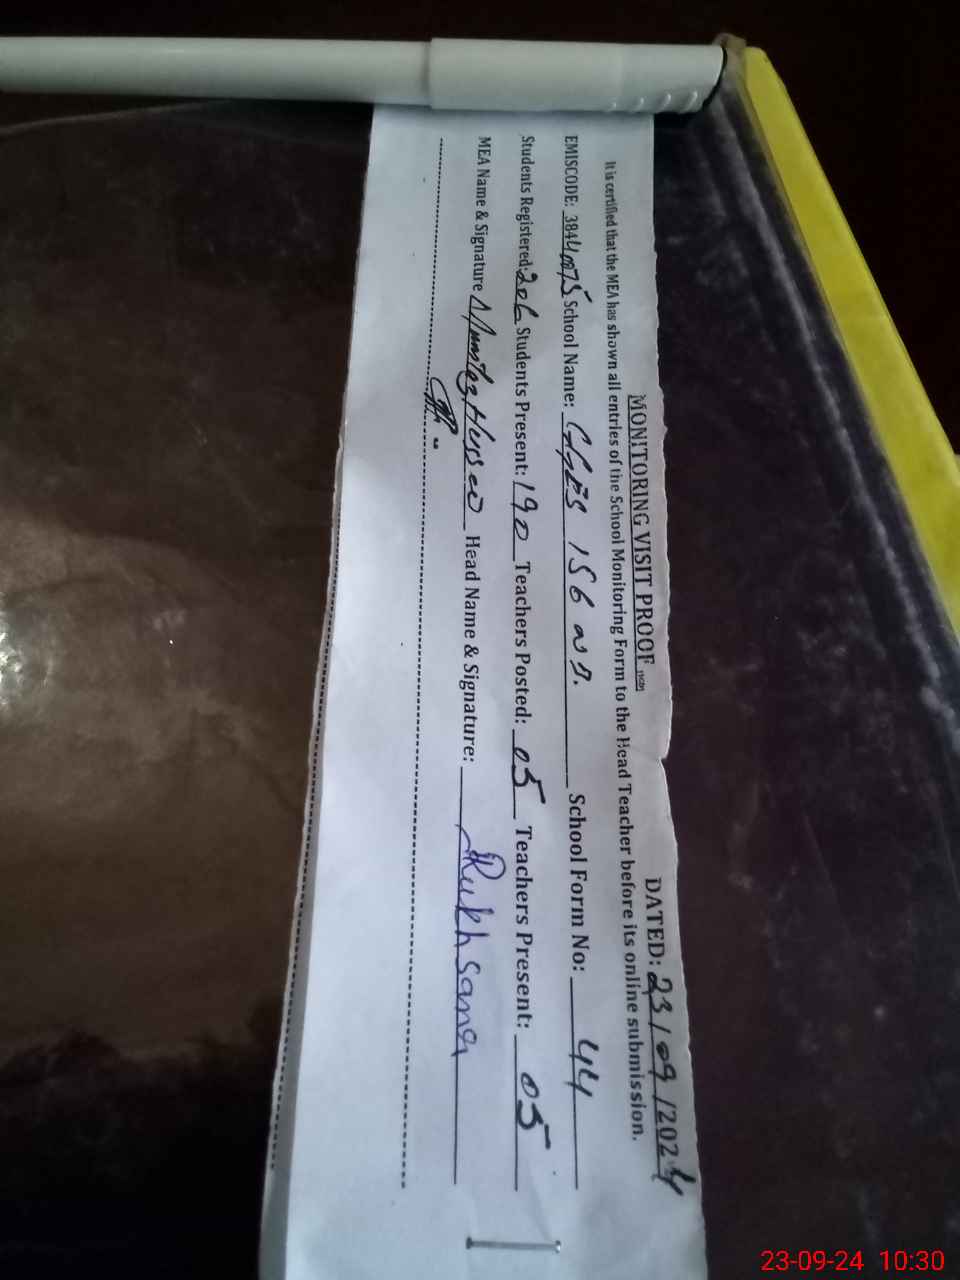 MONITORING VISIT PROOF DATED: 23/09/2024
It is certified that the MEA has shown all entries of the School Monitoring Form to the Head Teacher before its online submission.
EMISCODE: 38440075 School Name: GGES 156 School Form No: 44
Students Registered: 206 Students Present: 190 Teachers Posted: 05 Teachers Present: 05
MEA Name & Signature Head Name & Signature: Rukhsana
23-09-24 10:30